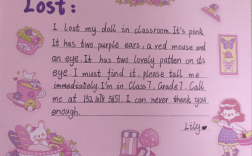 Lost:
I lost my doll in classroom. It's pink.
It has two purple ears, a red mouse and
an eye. It has two lovely patten on its
eye. I must find it. Please tell me
immediately. I'm in Class 7, Grade 7. Call
me at 132 5151. I can never thank you
enough.
Lily